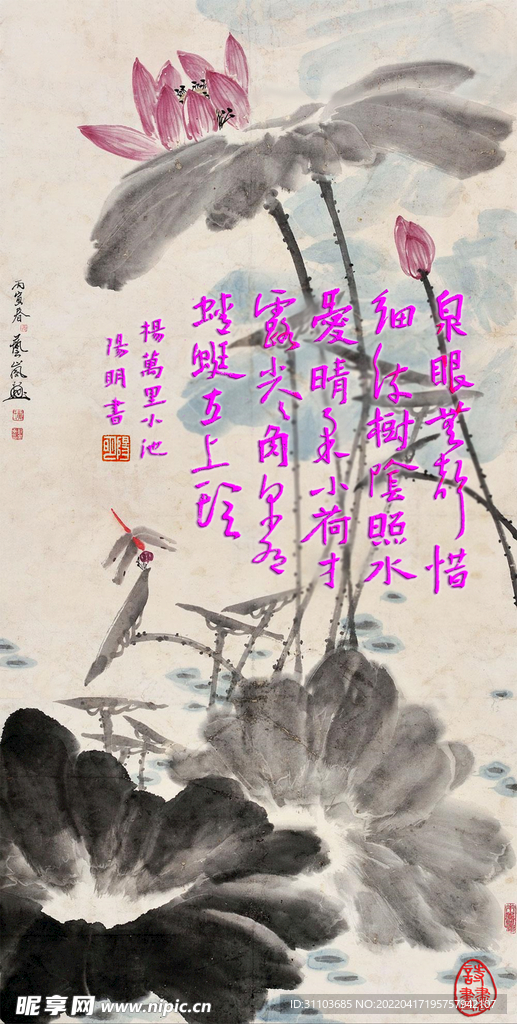 泉眼無聲惜
細流樹陰照水
愛晴柔小荷才
露尖々角早有
蜻蜓立上頭
楊萬里小池
陽明書
丙寅春
藝嵐
昵享网 www.nipic.cn
ID:31103685 NO:20220417195757942107